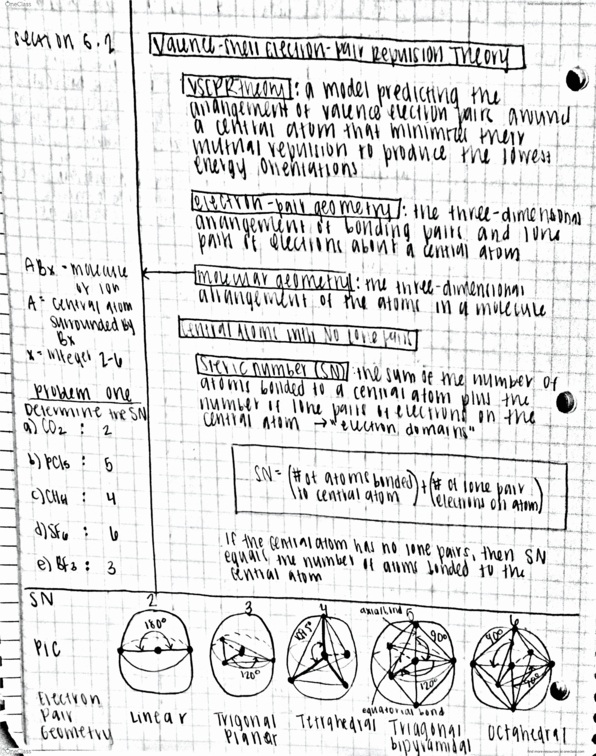 OneClass
OneClass
section 6.2
Valence-shell Electron-pair Repulsion Theory
VSEPR Theory: a model predicting the
arrangement of valence electron pairs around
a central atom that minimizes their
mutual repulsion to produce the lowest
energy orientations
electron-pair geometry: the three-dimensional
arrangement of bonding pairs and lone
pair of electrons about a central atom
molecular geometry: the three-dimensional
arrangement of the atoms in a molecule
Central Atoms with No lone pairs
Steric number (SN) the sum of the number of
atoms bonded to a central atom plus the
number of lone pairs of electrons on the
central atom → "electron domains"
SN = (# of atoms bonded to central atom) + (# of lone pair electrons on atom)
If the central atom has no lone pairs, then SN
equals the number of atoms bonded to the
central atom
ABx = molecule
or ion
A = central atom
surrounded by
Bx
x = integer 2-6
problem one
Determine the SN
a) CO2 : 2
b) PCl5 : 5
c) CH4 : 4
d) SF6 : 6
e) BF3 : 3
SN 2 3 4 5 6
PIC
180°
120°
axial bond
90°
120°
equatorial bond
90°
Electron
Pair
Geometry
Linear
Trigonal
Planar
Tetrahedral
Triagonal
bipyramidal
Octahedral